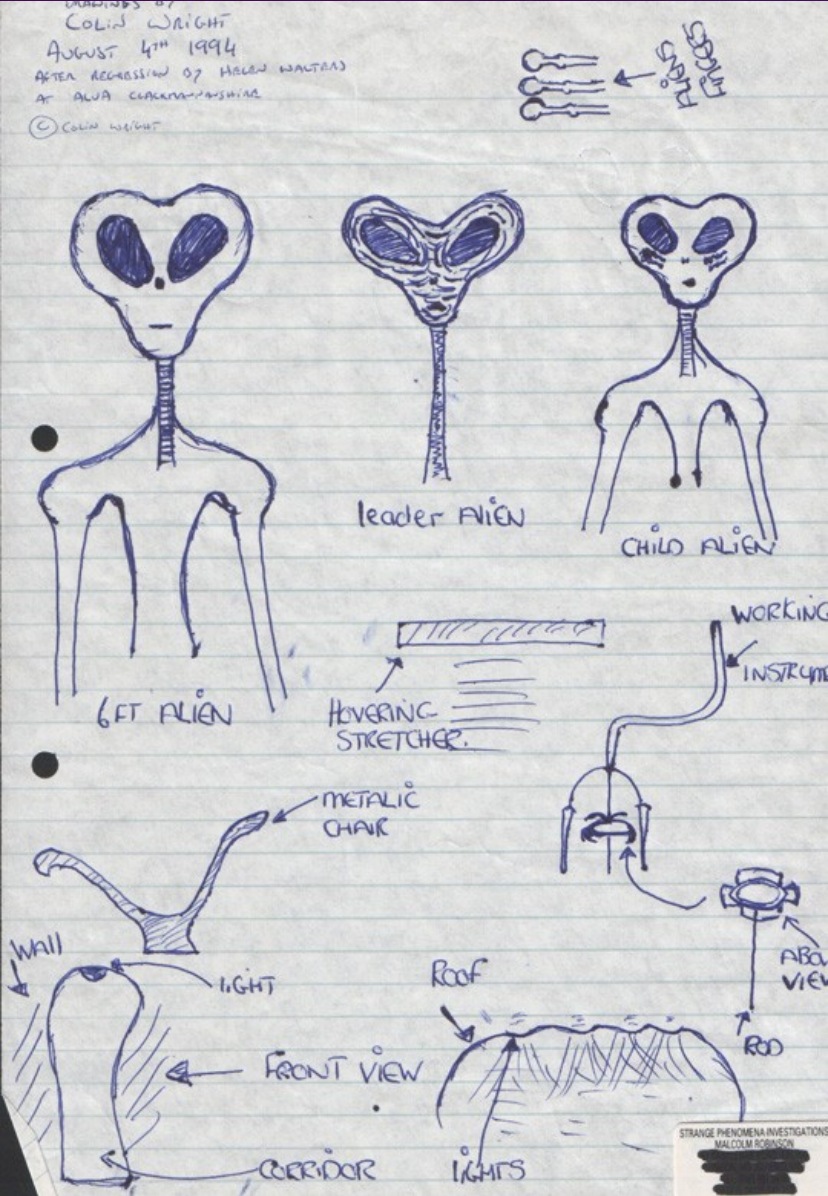 DRAWINGS BY
COLIN WRIGHT
AUGUST 4TH 1994
AFTER REGRESSION BY HELEN WALTERS
AT ALVA CLACKMANNANSHIRE
© COLIN WRIGHT
ALIENS
FINGERS
leader ALIEN
CHILD ALIEN
6FT ALIEN
HOVERING
STRETCHER.
WORKING
INSTRUME
METALIC
CHAIR
WAll
lIGHT
ROOF
ABOV
VIEW
ROD
FRONT VIEW
CORRIDOR
lIGHTS
STRANGE PHENOMENA INVESTIGATIONS
MALCOLM ROBINSON